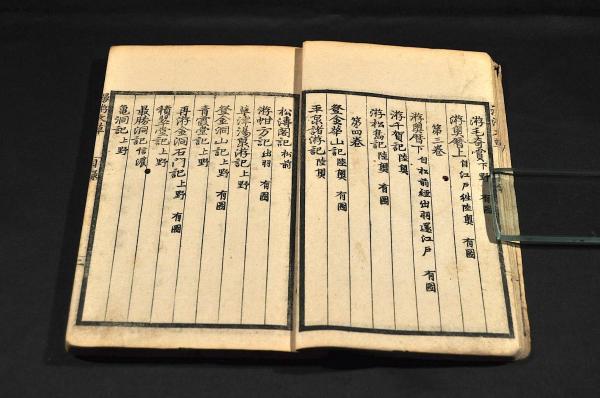 游毛奇賞 下野 有圖
游奧曆上 自江戸徃陸奧 有圖
第三卷
游奧曆下 自松前經出羽還江戸 有圖
游千賀記 陸奧
游松島記 陸奧
第四卷
登金華山記 陸奧 有圖
平泉諸游記 陸奧
松濤閣記 松前
游㟁方記 出羽 有圖
草津湯泉游記 上野
登金洞山記 上野 有圖
青霞堂記 上野
再游金洞石門記 上野 有圖
積翠堂記 上野
最勝洞記 信濃
龜洞記 上野
目錄